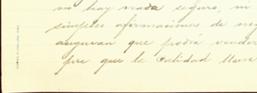 no hay nada seguro, ni
simples afirmaciones de
aseguran que podrá vender
fue que la calidad